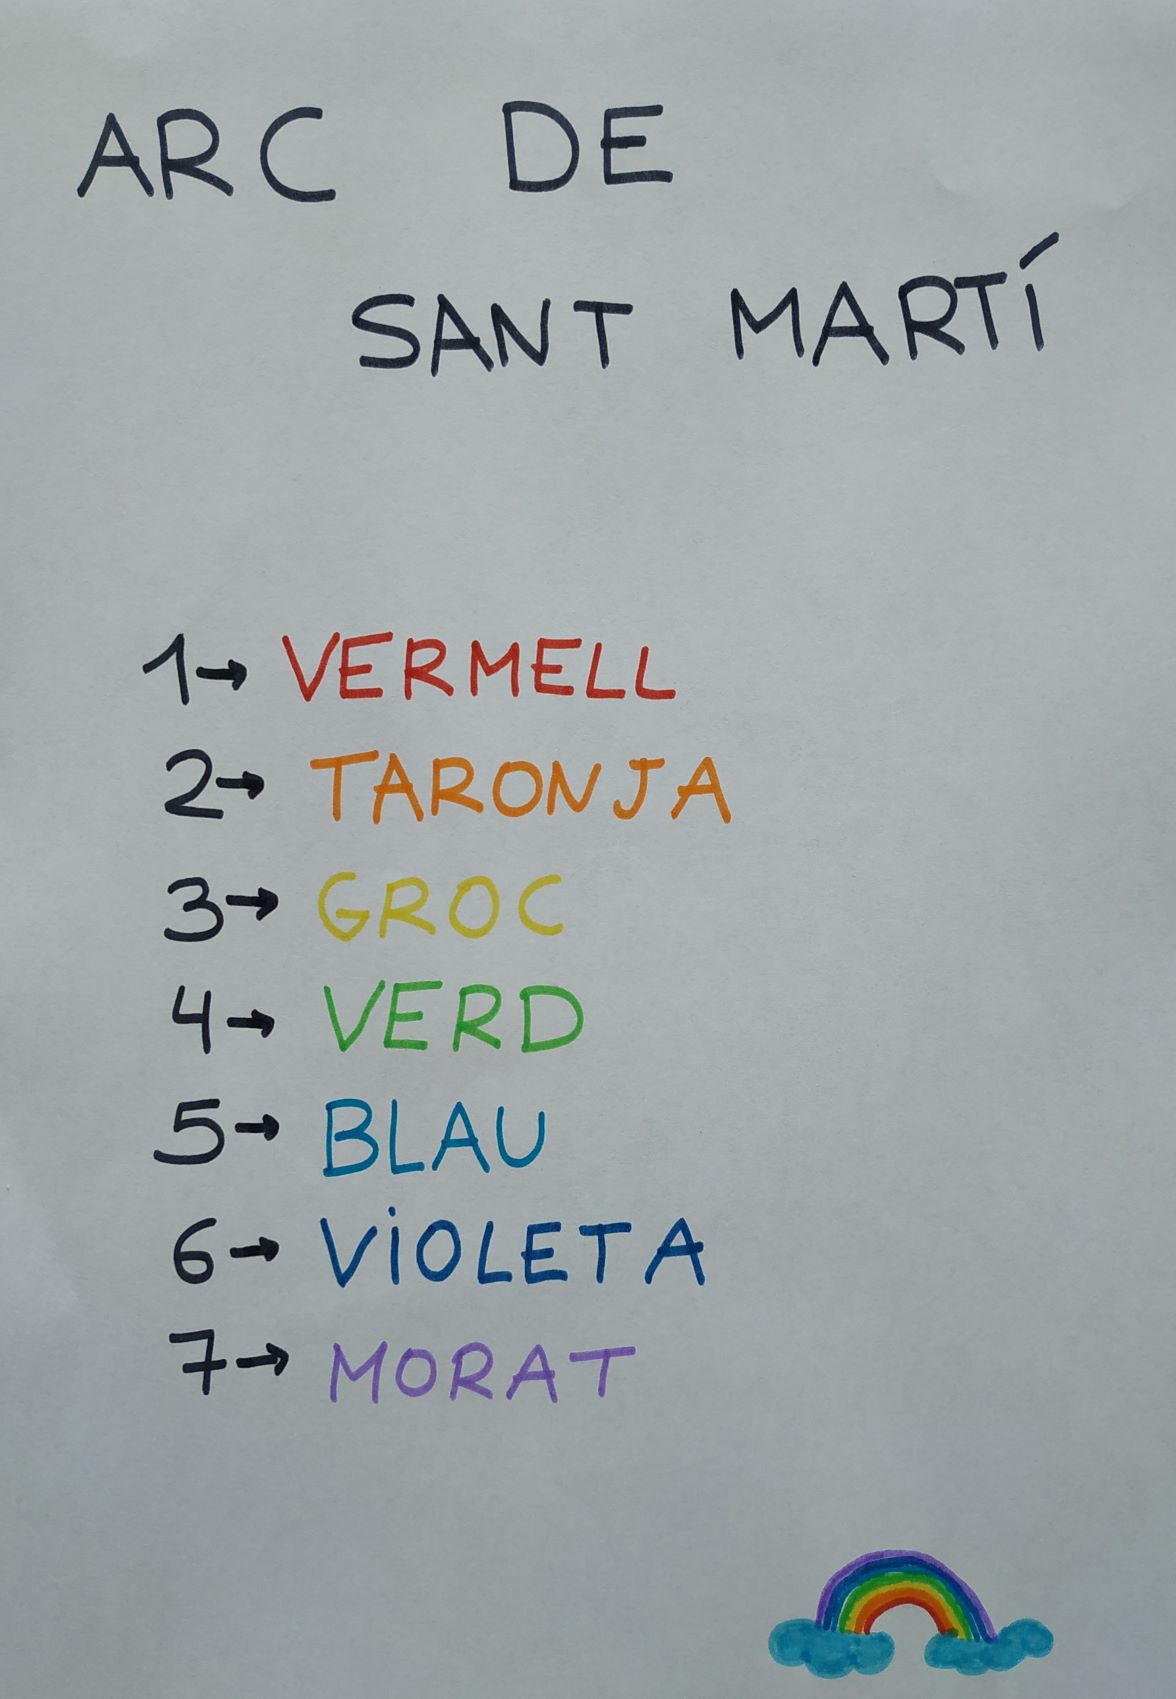 ARC DE
SANT MARTÍ
1→ VERMELL
2→ TARONJA
3→ GROC
4→ VERD
5→ BLAU
6→ VIOLETA
7→ MORAT